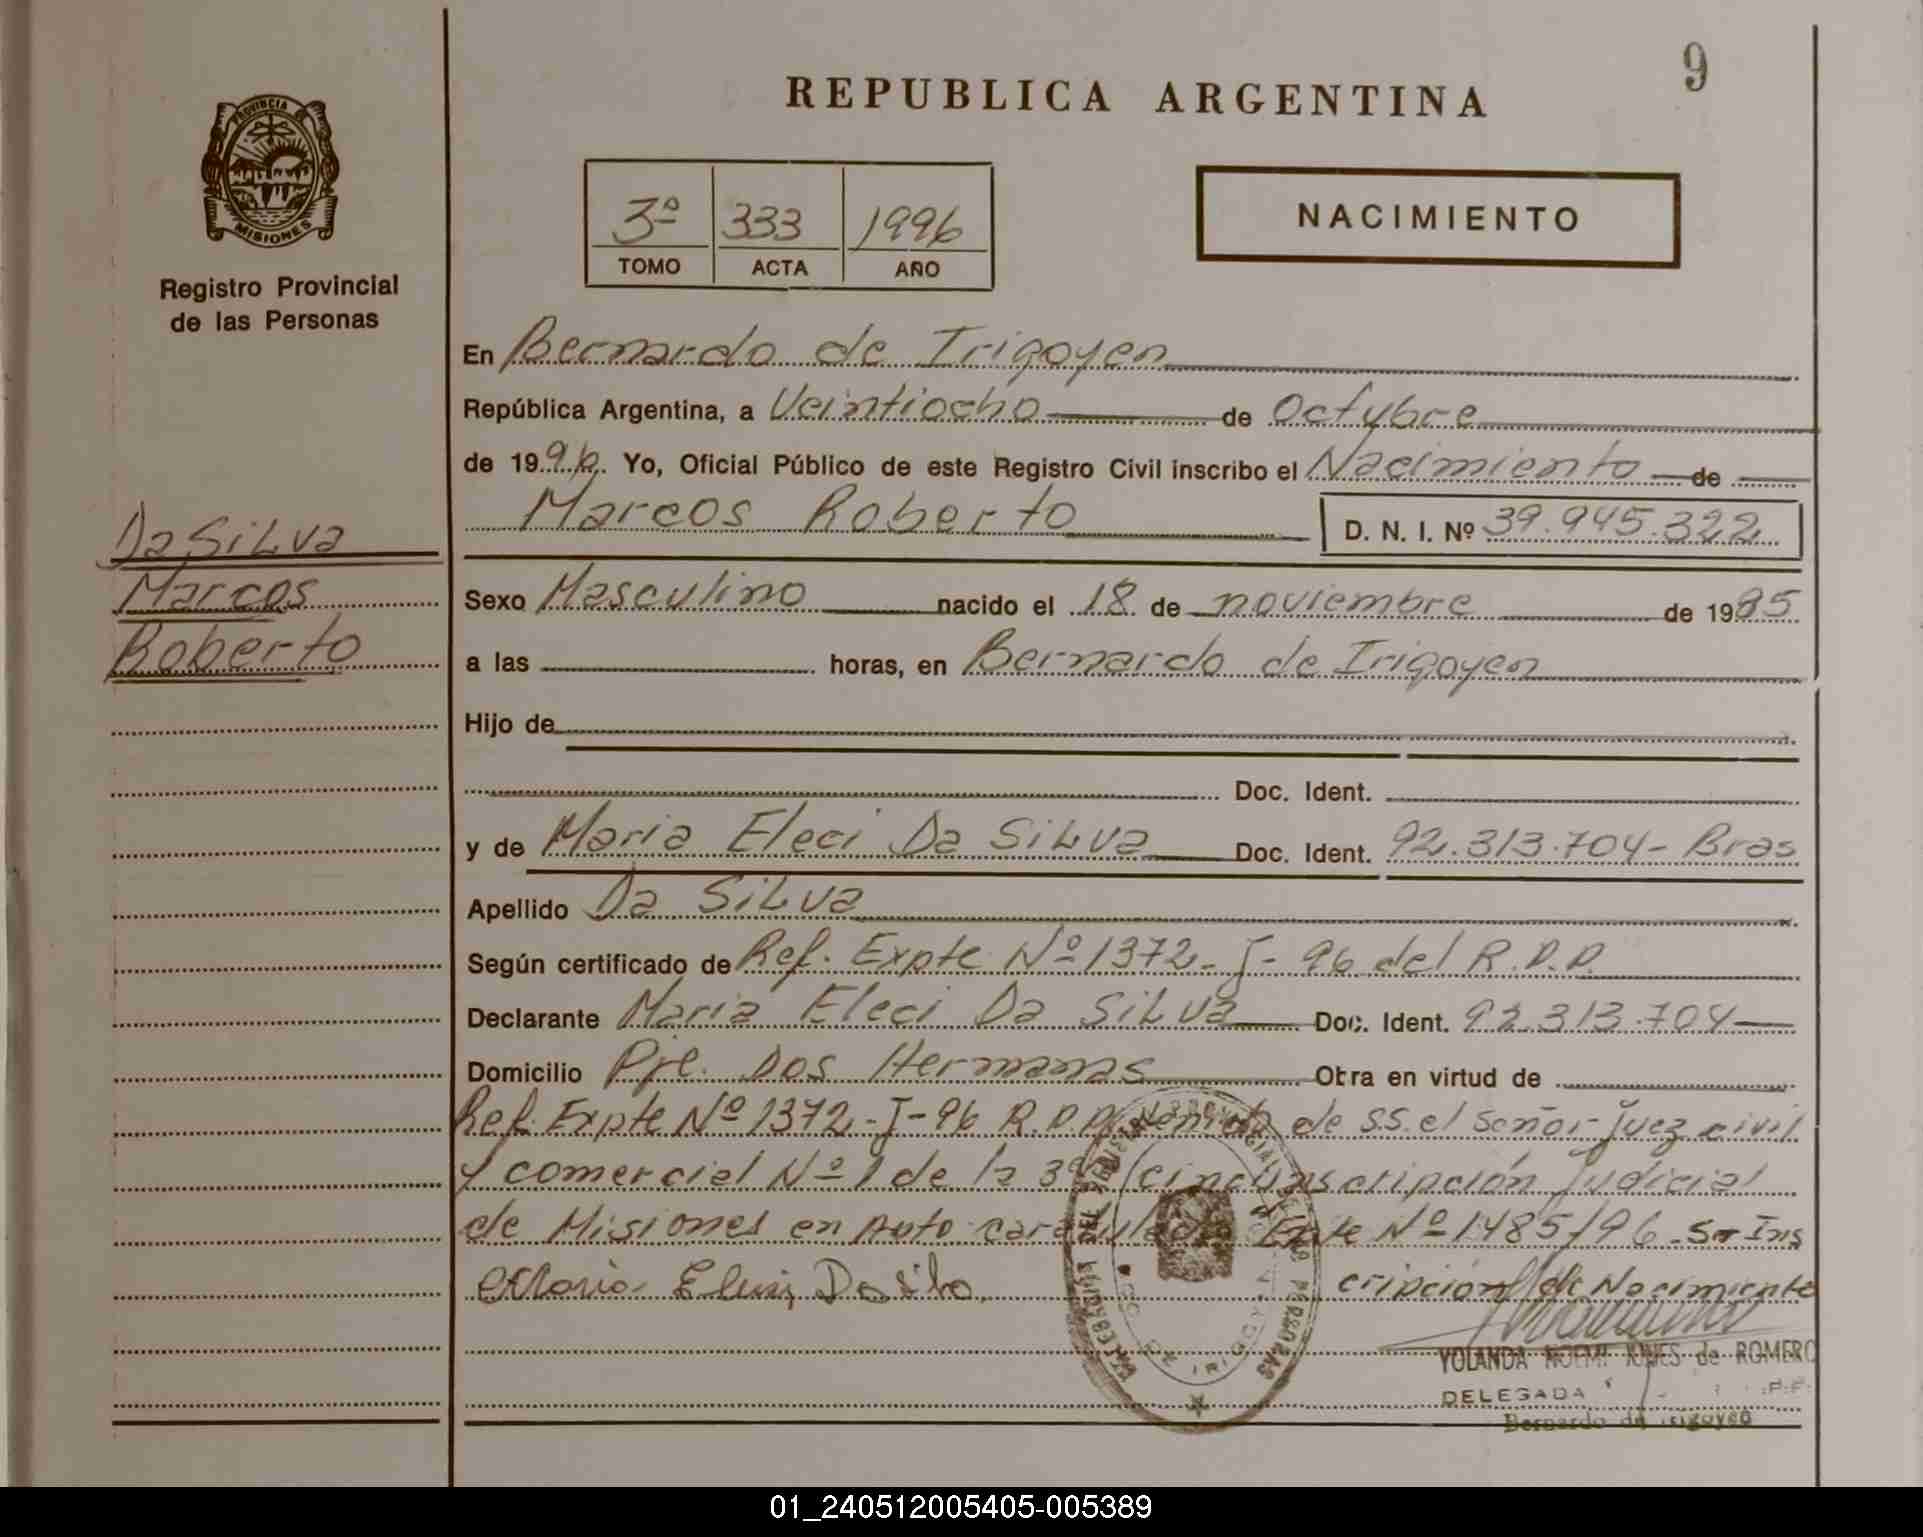 9
REPUBLICA ARGENTINA
PROVINCIA
MISIONES
Registro Provincial
de las Personas
3º 333 1996
TOMO ACTA AÑO
NACIMIENTO
En Bernardo de Irigoyen
República Argentina, a Veintiocho de Octubre
de 1996. Yo, Oficial Público de este Registro Civil inscribo el Nacimiento de
Marcos Roberto D. N. I. Nº 39.945.322
Da SiLva
Marcos
Roberto
Sexo Masculino nacido el 18 de noviembre de 1985
a las horas, en Bernardo de Irigoyen
Hijo de
Doc. Ident.
y de Maria Eleci Da SiLva Doc. Ident. 92.313.704- Bras
Apellido Da SiLva
Según certificado de Ref. Expte Nº 1372-J-96 del R.P.P.
Declarante Maria Eleci Da SiLva Doc. Ident. 92.313.704
Domicilio Pje. Dos Hermanas Otra en virtud de
Ref. Expte Nº 1372-J-96 R.P.P. de S.S. el Señor Juez civil
y comercial Nº 1 de la 3º circunscripción Judicial
de Misiones en Auto caratulado Expte Nº 1485/96 - S-Ins
cripción de Nacimiento
YOLANDA NOEMI de ROMERO
DELEGADA
Bernardo de Irigoyen
01_240512005405-005389